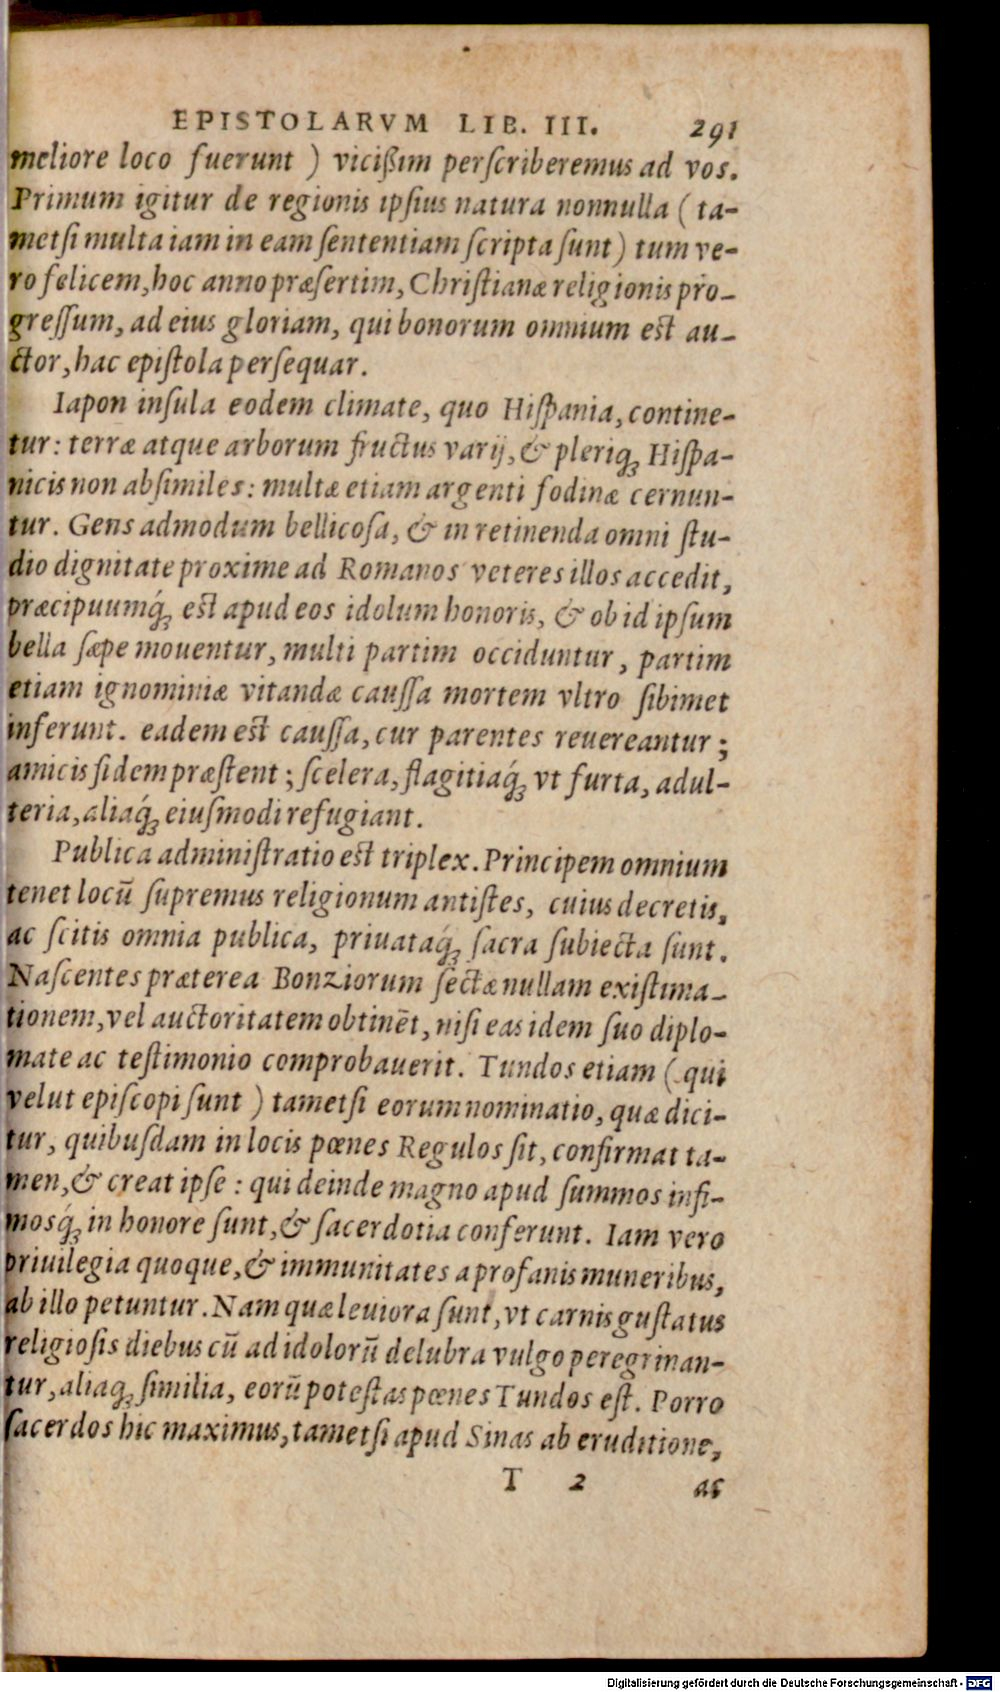 EPISTOLARVM LIB. III. 291
meliore loco fuerunt ) vicißim perſcriberemus ad vos.
Primum igitur de regionis ipſius natura nonnulla ( ta-
metſi multa iam in eam ſententiam ſcripta ſunt ) tum ve-
ro felicem, hoc anno præſertim, Chriſtianæ religionis pro-
greſſum, ad eius gloriam, qui bonorum omnium eſt au-
ctor, hac epiſtola perſequar.
Iapon inſula eodem climate, quo Hiſpania, contine-
tur: terræ atque arborum fructus varij, & pleriq́ꝫ Hiſpa-
nicis non abſimiles: multæ etiam argenti fodinæ cernun-
tur. Gens admodum bellicoſa, & in retinenda omni ſtu-
dio dignitate proxime ad Romanos veteres illos accedit,
præcipuumq́ꝫ eſt apud eos idolum honoris, & ob id ipſum
bella ſæpe mouentur, multi partim occiduntur, partim
etiam ignominiæ vitandæ cauſſa mortem vltro ſibimet
inferunt. eadem eſt cauſſa, cur parentes reuereantur;
amicis fidem præſtent; ſcelera, flagitiaq́ꝫ vt furta, adul-
teria, aliaq́ꝫ eiuſmodi refugiant.
Publica adminiſtratio eſt triplex. Principem omnium
tenet locū ſupremus religionum antiſtes, cuius decretis,
ac ſcitis omnia publica, priuataq́ꝫ ſacra ſubiecta ſunt.
Naſcentes præterea Bonziorum ſectæ nullam exiſtima-
tionem, vel auctoritatem obtinēt, niſi eas idem ſuo diplo-
mate ac teſtimonio comprobauerit. Tundos etiam ( qui
velut epiſcopi ſunt ) tametſi eorum nominatio, quæ dici-
tur, quibuſdam in locis pœnes Regulos ſit, confirmat ta-
men, & creat ipſe : qui deinde magno apud ſummos infi-
mosq́ꝫ in honore ſunt, & ſacerdotia conferunt. Iam vero
priuilegia quoque, & immunitates a profanis muneribus,
ab illo petuntur. Nam quæ leuiora ſunt, vt carnis guſtatus
religioſis diebus cū ad idolorū delubra vulgo peregrinan-
tur, aliaqꝫ ſimilia, eorū poteſtas pœnes Tundos eſt. Porro
ſacerdos hic maximus, tametſi apud Sinas ab eruditione,
T 2 as
Digitalisierung gefördert durch die Deutsche Forschungsgemeinschaft - DFG